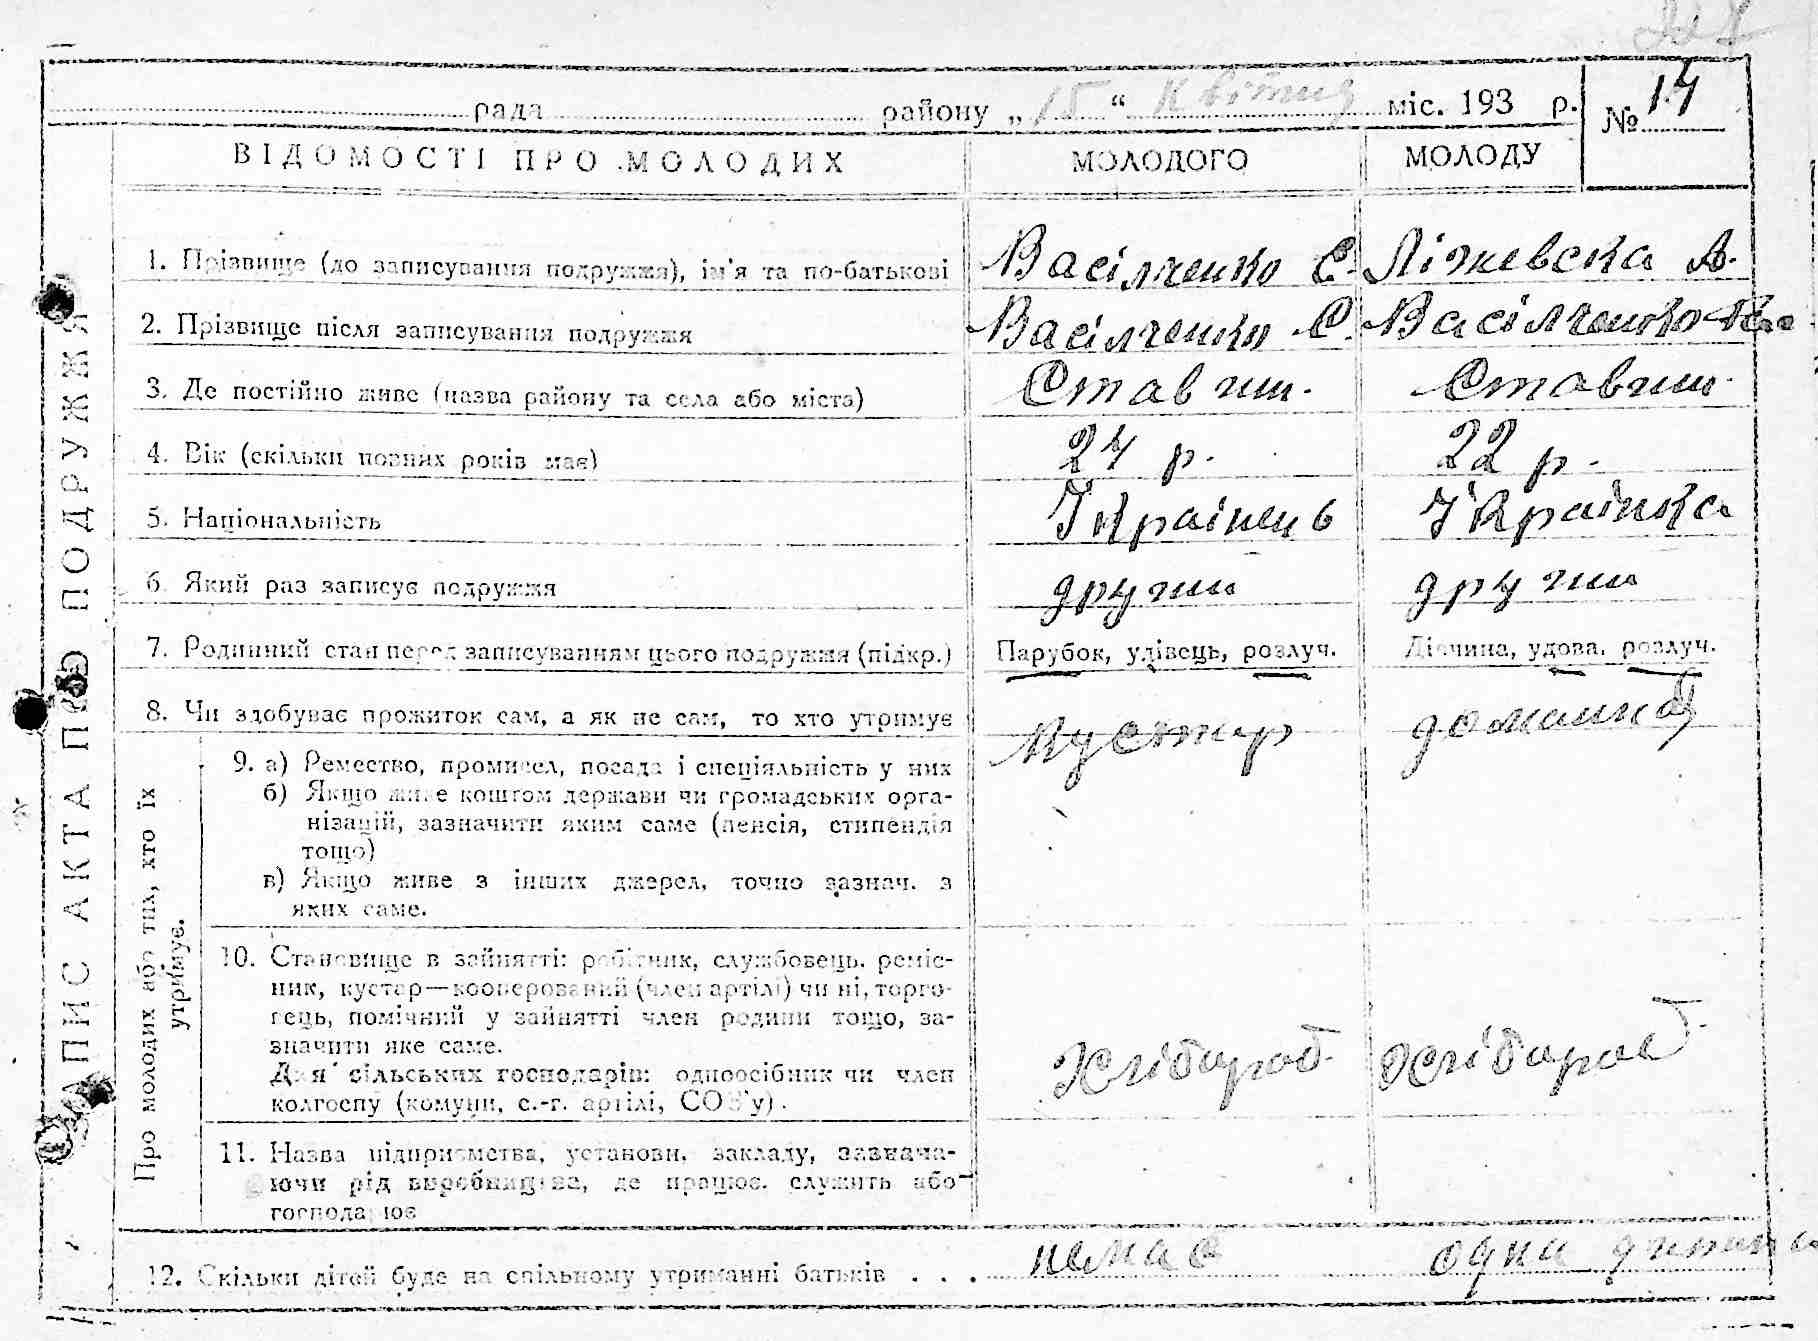 рада районy „15“ Квітня міс. 193 р.
№ 14
ВІДОМОСТІ ПРО МОЛОДИХ МОЛОДОГО МОЛОДУ
ЗАПИС АКТА ПРО ПОДРУЖЖЯ
1. Прізвище (до записування подружжя), ім'я та по-батькові Васілченко С. Ліжевска А.
2. Прізвище після записування подружжя Васілченко С. Васілченко
3. Де постійно живе (назва району та села або міста) Ставчин. Ставчин.
4. Вік (скільки повних років має) 24 р. 22 р.
5. Національність Україінець Україінка
6. Який раз записує подружжя другий другий
7. Родинний стан перед записуванням цього подружжя (підкр.) Парубок, удівець, розлуч. Дівчина, удова, розлуч.
8. Чи здобуває прожиток сам, а як не сам, то хто утримує Кустар домашня
Про молодих або тих, хто їх
утримує.
9. а) Ремество, промисел, посада і спеціяльність у них
б) Якщо живе коштом держави чи громадських орга-
нізацій, зазначити яким саме (пенсія, стипендія
тощо)
в) Якщо живе з інших джерел, точно зазнач. з
яких саме.
10. Становище в зайнятті: робітник, службовець, реміс-
ник, кустар—кооперований (член артілі) чи ні, торго-
вець, помічний у зайнятті член родини тощо, за-
значити яке саме.
Для сільських господарів: одноосібник чи член
колгоспу (комуни, с.-г. артілі, СОЗ'у).
Хлібороб Хлібороб
11. Назва підприємства, установи, закладу, зазнача-
ючи рід виробництва, де працює, служить або
господарює
12. Скільки дітей буде на спільному утриманні батьків . . . немає одна дитина